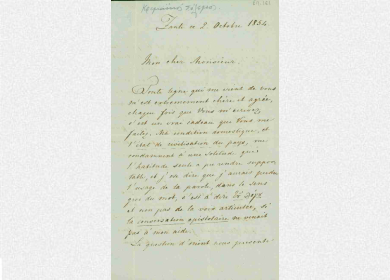 Zante ce 2. Octobre 1852.
Mon cher Monsieur.
Toute ligne qui me vient de vous
m'est extrêmement chère et agrée,
chaque fois que vous m'écrivez
c'est un vrai cadeau que vous me
faites. Ma condition domestique, et
l'état de civilisation du pays, me
condamnent à une solitude que
l'habitude seule a pu rendre suppor-
table, et j'ose dire que j'aurais perdu
l'usage de la parole, dans le sens
grec du mot, c'est à dire
et non pas de la voix articulée, si
la conversation épistolaire ne venait
pas à mon aide.
La question d'orient nous presente